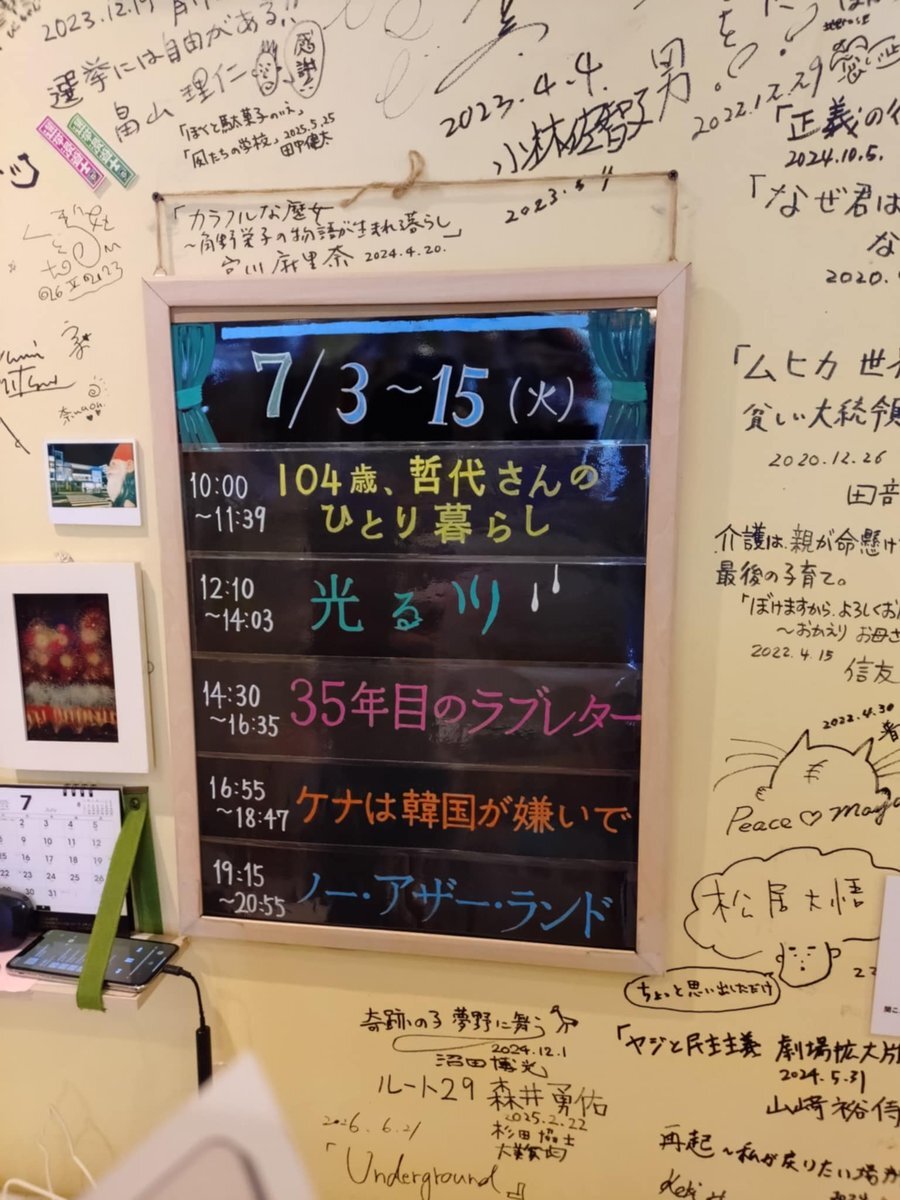 2023.12.19
選挙には自由がある!!
畠山理仁
感謝!
「ぼくと駄菓子のいえ」
「風たちの学校」2025.5.25
田中健太
2023.4.4
小林佐智子
男
2022.12.29
「正義の行
2024.10.5.
「なぜ君は
な
2020.
「カラフルな魔女
～角野栄子の物語が生まれる暮らし」
宮川麻里奈 2024.4.20.
7/3～15(火)
10:00
～11:39
104歳、哲代さんの
ひとり暮らし
12:10
～14:03
光る川
14:30
～16:35
35年目のラブレター
16:55
～18:47
ケナは韓国が嫌いで
19:15
～20:55
ノー・アザー・ランド
「ムヒカ 世界
貧しい大統領
2020.12.26
田部
介護は、親が命懸け
最後の子育て。
「ぼけますから、よろしくお
～おかえり お母さ
2022.4.15
信友
2022.4.30
Peace♡
松居大悟
ちょっと思い出しただけ
7
奇跡の子 夢野に舞う
2024.12.1
沼田博光
ルート29 森井勇佑
2025.2.22
「Underground」
「ヤジと民主主義 劇場拡大版
2024.5.31
山﨑裕侍
再起～私が戻りたい場が